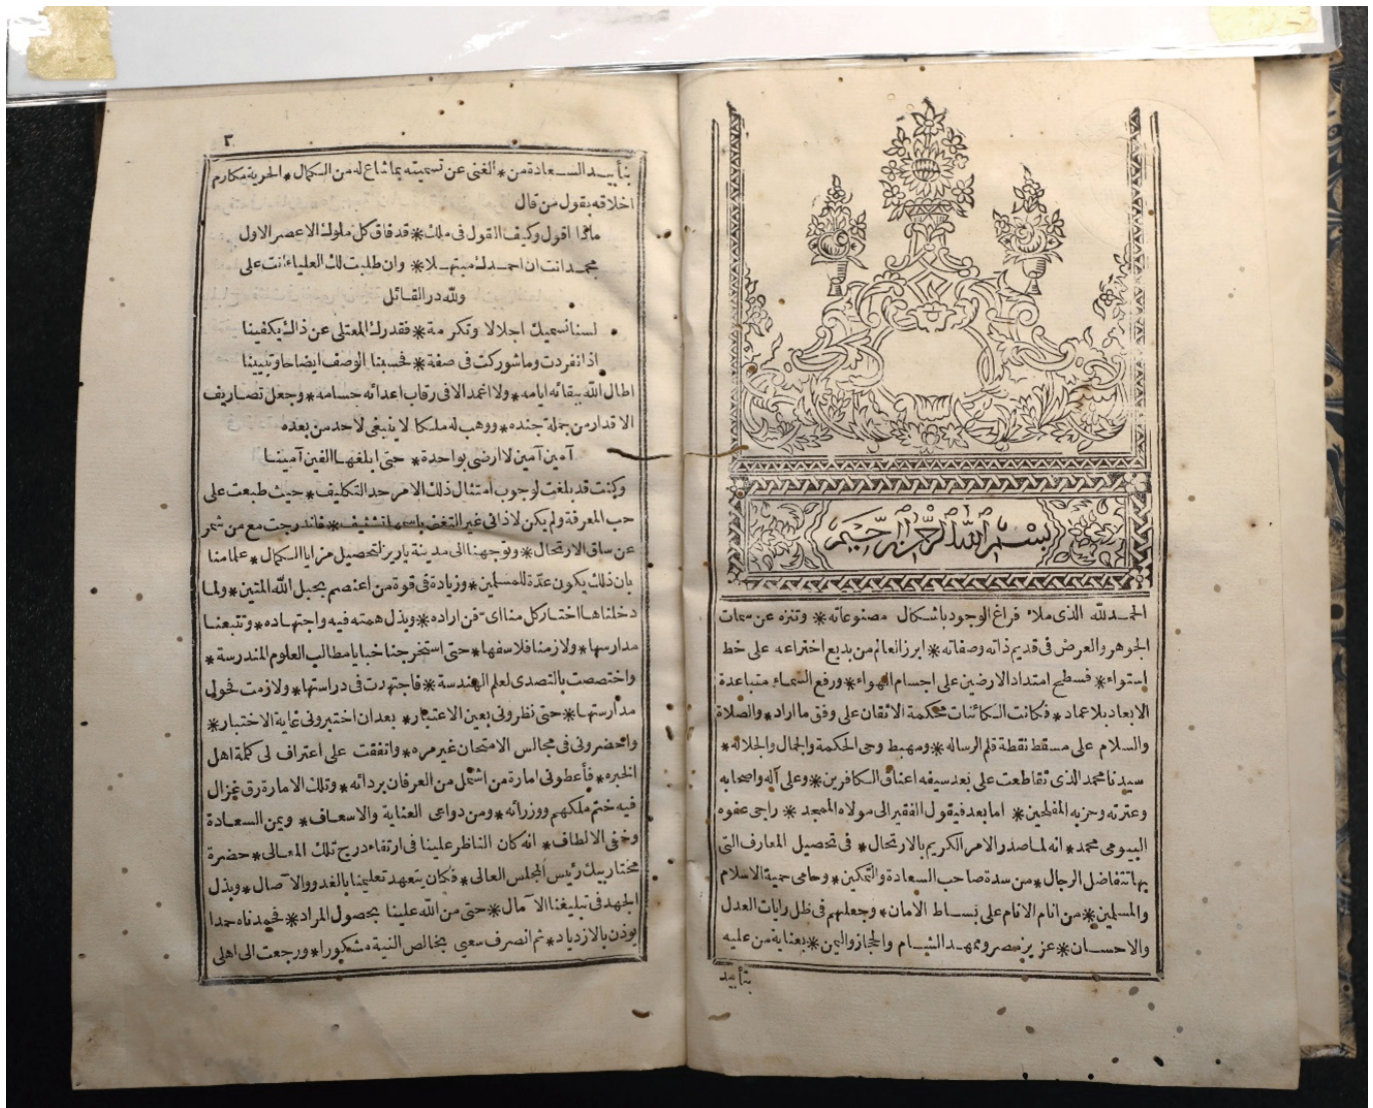 بسم الله الرحمن الرحيم
الحمد لله الذى ملاء فراغ الوجود باشكال مصنوعاته * وتنزه عن سمات
الجوهر والعرض فى قديم ذاته وصفاته * ابرز العالم من بديع اختراعه على خط
استواء * فسطح امتداد الارضين على اجسام الهواء * ورفع السماء متباعدة
الابعاد بلا عماد * فكانت الكائنات محكمة الاتقان على وفق ما اراد * والصلاة
والسلام على مسقط نقطة قلم الرساله * ومهبط وحى الحكمة والجمال والجلاله *
سيدنا محمد الذى تقاطعت على بعد سيفه اعناق الكافرين * وعلى آله واصحابه
وعترته وحزبه المفلحين * اما بعد فيقول الفقير الى مولاه الممجد * راجى عفوه
البيومى محمد * انه لما صدر الامر الكريم بالارتحال * فى تحصيل المعارف التى
بها تتفاضل الرجال * من سدة صاحب السعادة والتمكين * وحامى حمية الاسلام
والمسلمين * من انام الانام على بساط الامان * وجعلهم فى ظل رايات العدل
والاحسان * عزيز مصر وممهد الشام والحجاز واليمن * بعناية من عليه
بتأييد
٣
بتأييد السعادة من * ألغنى عن تسميته بما شاع له من الكمال * الحرية مكارم
اخلاقه بقول من قال
ماذا اقول وكيف القول فى ملك * قد فاق كل ملوك الاعصر الاول
محمد انت ان احمدك مبتهلا * وان طلبت لك العلياء انت على
ولله در القائل
لسنا نسميك اجلالا وتكرمة * فقدرك المعتلى عن ذاك يكفينا
اذا نفردت وما شوركت فى صفة * فحسبنا الوصف ايضاحا وتبيينا
اطال الله ببقائه ايامه * ولا اغمد الا فى رقاب اعدائه حسامه * وجعل تصاريف
الاقدار من جملة جنده * ووهب له ملكا لا ينبغى لاحد من بعده
آمين آمين لا ارضى بواحدة * حتى ابلغها الفين آمينا
وكنت قد بلغت لوجوب امتثال ذلك الامر حد التكليف * حيث طبعت على
حب المعرفة ولم يكن لاذانى غير التغنى باسمها تشنيف * فاندرجت مع من شمر
عن ساق الارتحال * وتوجهنا الى مدينة باريز لتحصيل مزايا الكمال * علما منا
بان ذلك يكون عدّة للمسلمين * وزيادة فى قوة من اعتصم بحبل الله المتين * ولما
دخلناها اختار كل منا اىّ فن اراده * وبذل همته فيه واجتهاده * وتتبعنا
مدارسها * ولازمنا فلاسفها * حتى استخرجنا خبايا مطالب العلوم المندرسة *
واختصصت بالتصدى لعلم الهندسة * فاجتهدت فى دراستها * ولازمت فحول
مدارستها * حتى نظرونى بعين الاعتبار * بعد ان اختبرونى غاية الاختبار *
واحضرونى فى مجالس الامتحان غير مره * واتفقت على اعتراف لى كلمة اهل
الخبره * فأعطونى امارة من اشتمل من العرفان بردائه * وتلك الامارة رق غزال
فيه ختم ملكهم ووزرائه * ومن دواعى العناية والاسعاف * ويمن السعادة
وخفى الالطاف * انه كان الناظر علينا فى ارتقاء درج تلك المعالى * حضرة
مختار بيك رئيس المجلس العالى * فكان يتعهد تعليمنا بالغدو والآصال * وبذل
الجهد فى تبليغنا الآمال * حتى من الله علينا بحصول المراد * فحمدناه حمدا
يوذن بالازدياد * ثم انصرف سعيى بخالص النية مشكورا * ورجعت الى اهلى